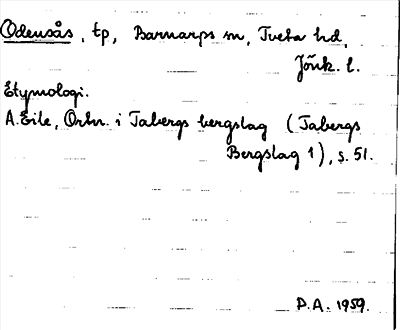 Odensås, tp, Barnarps sn, Tveta hd,
Jönk. l.
Etymologi.
A. Eile, Ortn. i Tabergs bergslag (Tabergs
Bergslag 1), s. 51.
P.A. 1959.